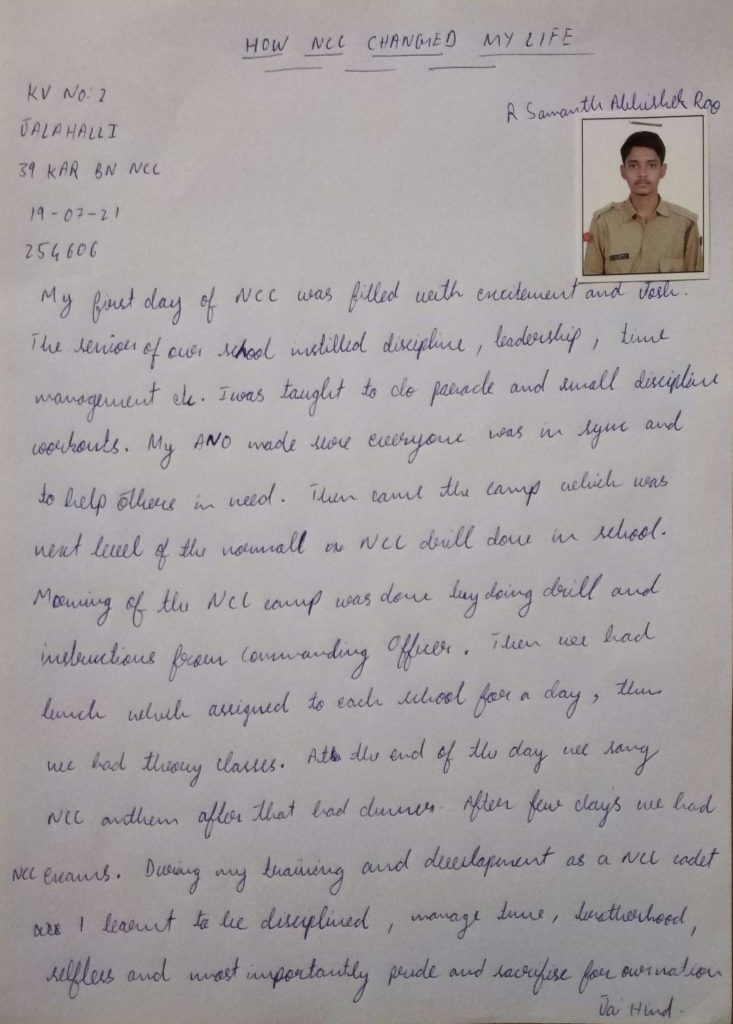 HOW NCC CHANGED MY LIFE
KV NO: 2
JALAHALLI
39 KAR BN NCC
19-07-21
254606
R Samanth Abhishek Rao
My first day of NCC was filled with excitement and Josh.
The senior of our school instilled discipline, leadership, time
management etc. I was taught to do parade and small discipline
workouts. My ANO made sure everyone was in sync and
to help others in need. Then came the camp which was
next level of the normall NCC drill done in school.
Morning of the NCC camp was done by doing drill and
instructions from Commanding Officer. Then we had
lunch which assigned to each school for a day, then
we had theory classes. At the end of the day we sang
NCC anthem after that had dinner. After few days we had
NCC exams. During my training and development as a NCC cadet
I learnt to be disciplined, manage time, brotherhood,
selfless and most importantly pride and sacrifise for our nation
Jai Hind.